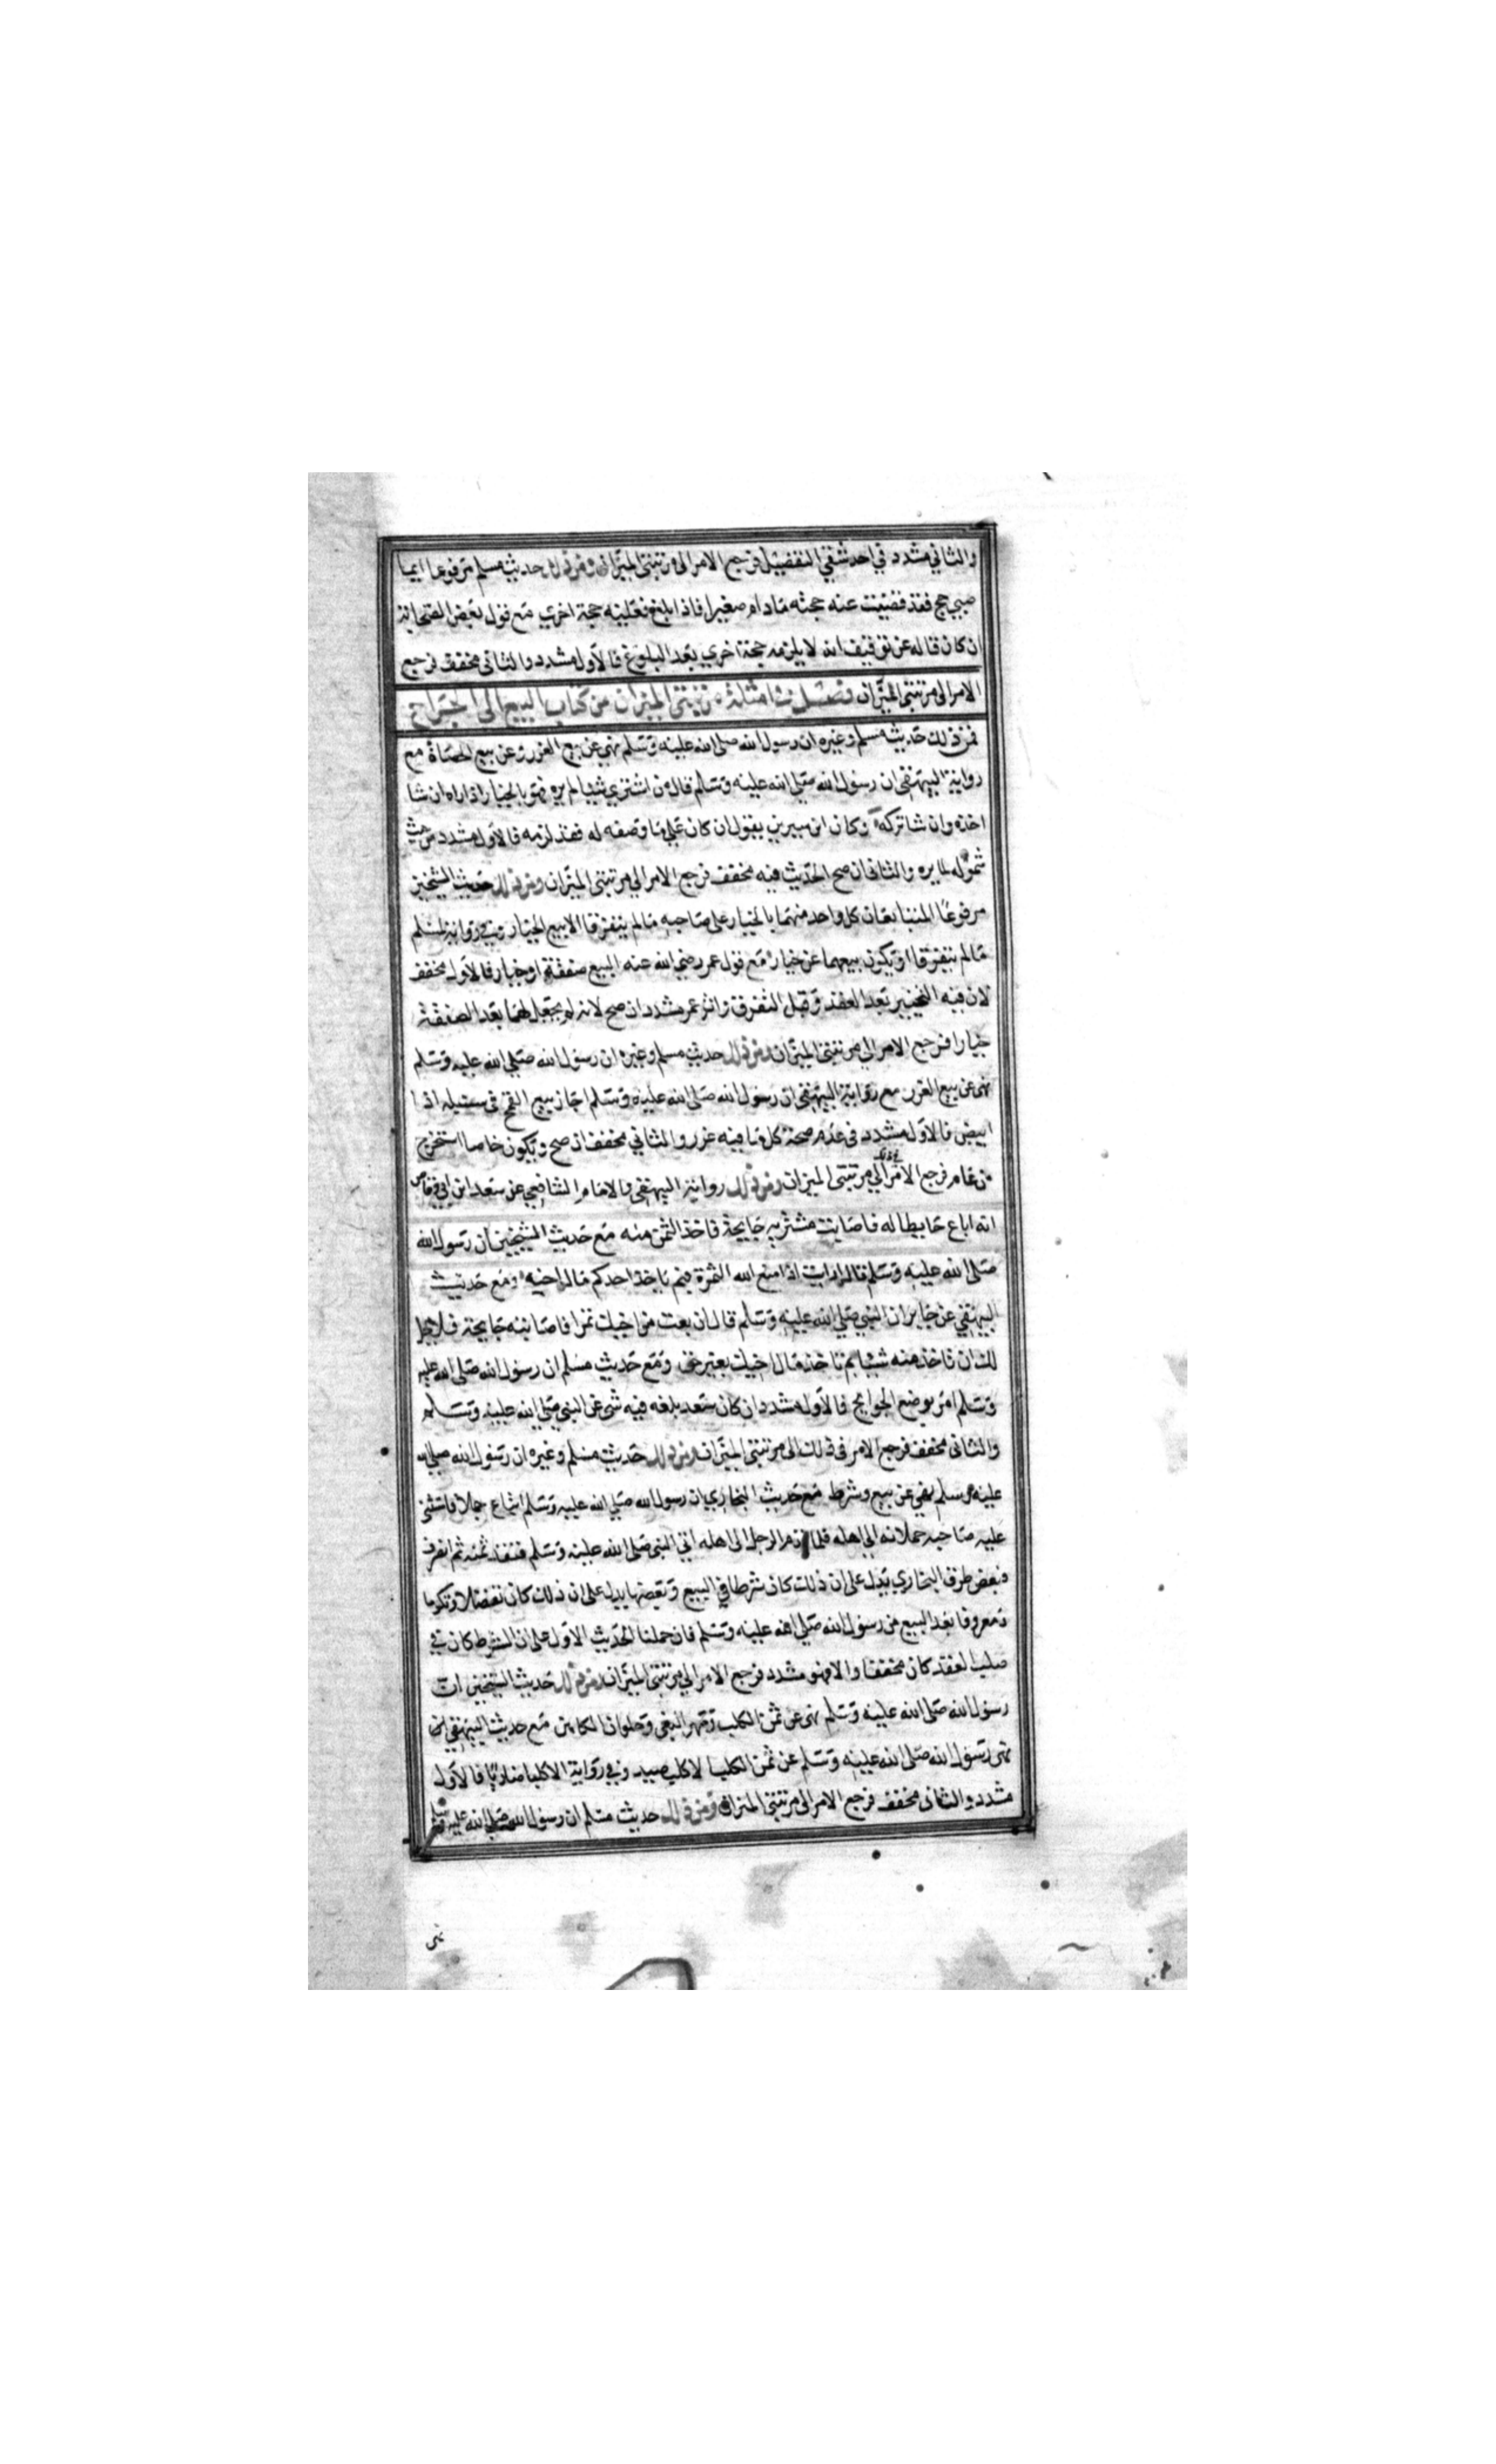 والثاني مشدد في احد شقي التفضيل فرجع الامر الى مرتبتي الميزان ومن ذلك حديث مسلم مرفوعا ايما
صبي حج فقد قضيت عنه حجته مادام صغيرا فاذا بلغ فعليه حجة اخرى مع قول بعض الصحابة
ان كان قاله عن توقيف انه لا يلزمه حجة اخري بعد البلوغ فالاول مشدد والثاني مخفف فرجع
الامر الى مرتبتي الميزان فصل في امثلة مرتبتي الميزان من كتاب البيع الى الجراح
فمن ذلك حديث مسلم وغيره ان رسول الله صلى الله عليه وسلم نهي عن بيع الغرر وعن بيع الحصاة مع
رواية البيهقي ان رسول الله صلي الله عليه وسلم قال من اشتري شيئا لم يره فهو بالخيار اذا راه ان شا
اخذه وان شا تركه وكان ابن سيرين يقول ان كان علي ما وصفه له فقد لزمه فالاول مشدد من حيث
شموله لما يره والثاني ان صح الحديث فيه مخفف فرجع الامر الي مرتبتي الميزان ومن ذلك حديث الشيخين
مرفوعا المتبايعان كل واحد منهما بالخيار على صاحبه ما لم يتفرقا الا بيع الخيار وفي رواية لمسلم
ما لم يتفرقا او يكون بيعهما عن خيار مع قول عمر رضي الله عنه البيع صفقة او خيار فالاول مخفف
لان فيه التخيير بعد العقد وقبل التفرقة واثر عمر مشدد ان صح لانه لم يجعل لهما بعد الصفقة
خيارا فرجع الامر الي مرتبتي الميزان ومن ذلك حديث مسلم وغيره ان رسول الله صلي الله عليه وسلم
نهى عن بيع الغرر مع رواية البيهقي ان رسول الله صلى الله عليه وسلم اجاز بيع القمح في سنبله اذا
ابيض فالاول مشدد في عدم صحة كل ما فيه غرر والثاني مخفف ان صح ويكون خاصا استخرج
من عام فرجع الامر في ذلك الي مرتبتي الميزان ومن ذلك رواية البيهقي والامام الشافعي عن سعد ابن ابي وقاص
انه اباع حايطا له فاصابت مشتريه جايحة فاخذ الثمن منه مع حديث الشيخين ان رسول الله
صلى الله عليه وسلم قال ارايت اذا منع الله الثمرة فبم ياخذ احدكم مال اخيه ومع حديث
البيهقي عن جابر ان النبي صلي الله عليه وسلم قال ان بعت من اخيك تمرا فاصابته جايحة فلا يحل
لك ان تاخذ منه شيئا بم تاخذ مال اخيك بغير حق ومع حديث مسلم ان رسول الله صلى الله عليه
وسلم امر بوضع الجوايح فالاول مشدد ان كان سعد بلغه فيه شى عن النبي صلي الله عليه وسلم
والثاني مخفف فرجع الامر في ذلك الى مرتبتي الميزان ومن ذلك حديث مسلم وغيره ان رسول الله صلى الله
عليه وسلم نهي عن بيع وشرط مع حديث البخاري ان رسول الله صلي الله عليه وسلم ابتاع جملا فاستثنى
عليه صاحبه حملانه الي اهله فلما الرجل الى اهله اتي النبي صلى الله عليه وسلم فنقده ثمنه ثم انصرف
فبعض طرق البخاري يدل على ان ذلك كان شرطا في البيع وبعضها يدل على ان ذلك كان تفضلا وتكرما
ومعروفا بعد البيع من رسول الله صلي الله عليه وسلم فان حملنا الحديث الاول على ان الشرط كان في
صلب العقد كان مخففا والا فهو مشدد فرجع الامر الي مرتبتي الميزان ومن ذلك حديث الشيخين ان
رسول الله صلى الله عليه وسلم نهى عن ثمن الكلب ومهر البغي وحلوان الكاهن مع حديث البيهقي ان
نهى رسول الله صلى الله عليه وسلم عن ثمن الكلب الا كلب صيد وفي رواية الا كلبا ضاريا فالاول
مشدد والثاني مخفف فرجع الامر الى مرتبتي الميزان ومن ذلك حديث مسلم ان رسول الله صلي الله عليه وسلم
نهى